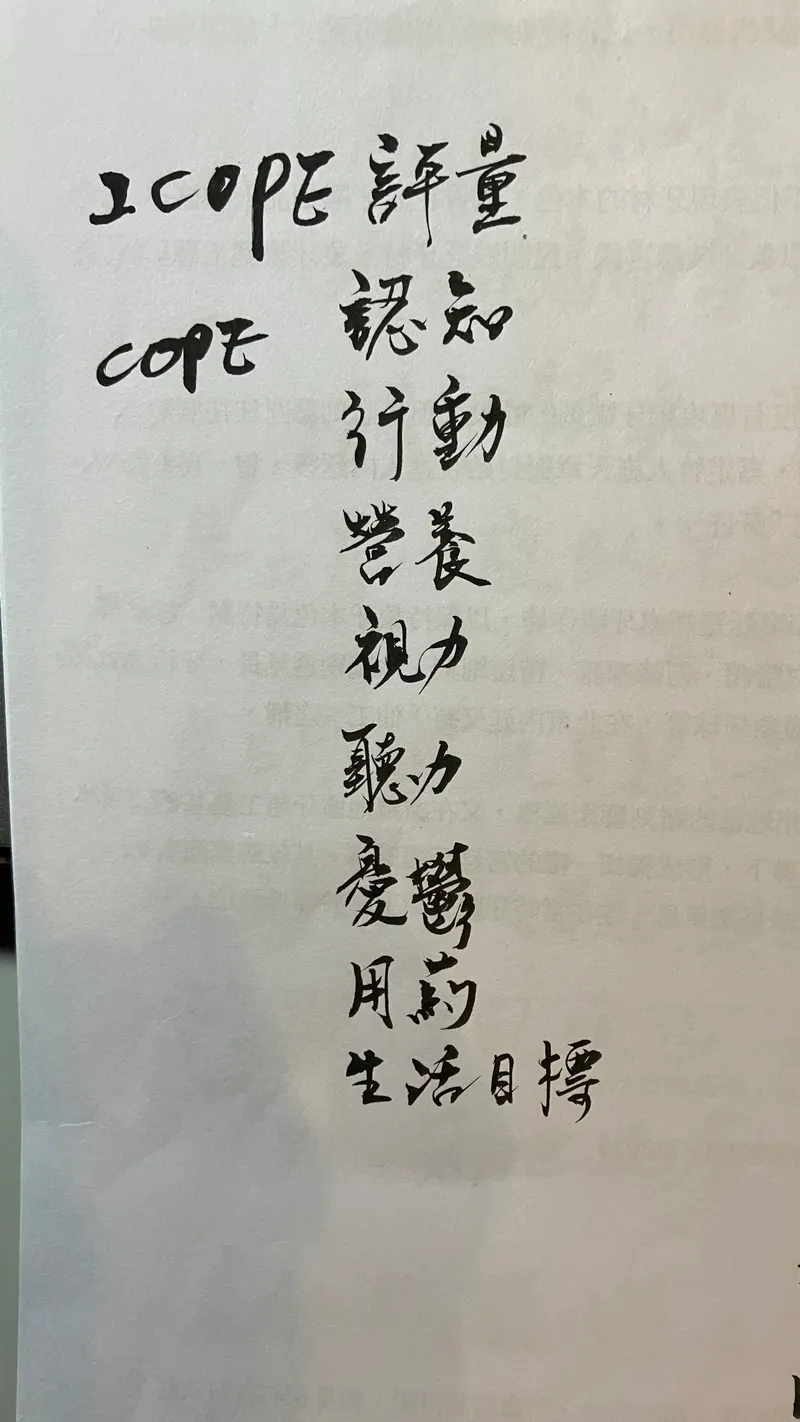 ICOPE 評量
COPE 認知
行動
營養
視力
聽力
憂鬱
用葯
生活目標